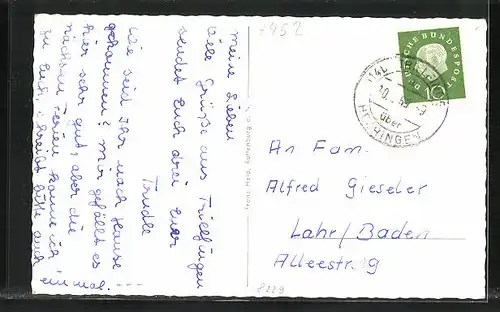 Meine Lieben
Viele Grüße aus Trillfingen
sendet Euch drei Euer
Trudle
Wie seid Ihr nach Hause
gekommen? Mir gefällt es
hier sehr gut, aber die
nächsten Ferien komme ich
zu Euch. Schreibt bitte auch
einmal. ---
7452
DEUTSCHE BUNDESPOST
10
über
HECHINGEN
An Fam.
Alfred Gieseler
Lahr/Baden
Alleestr. 19
8229